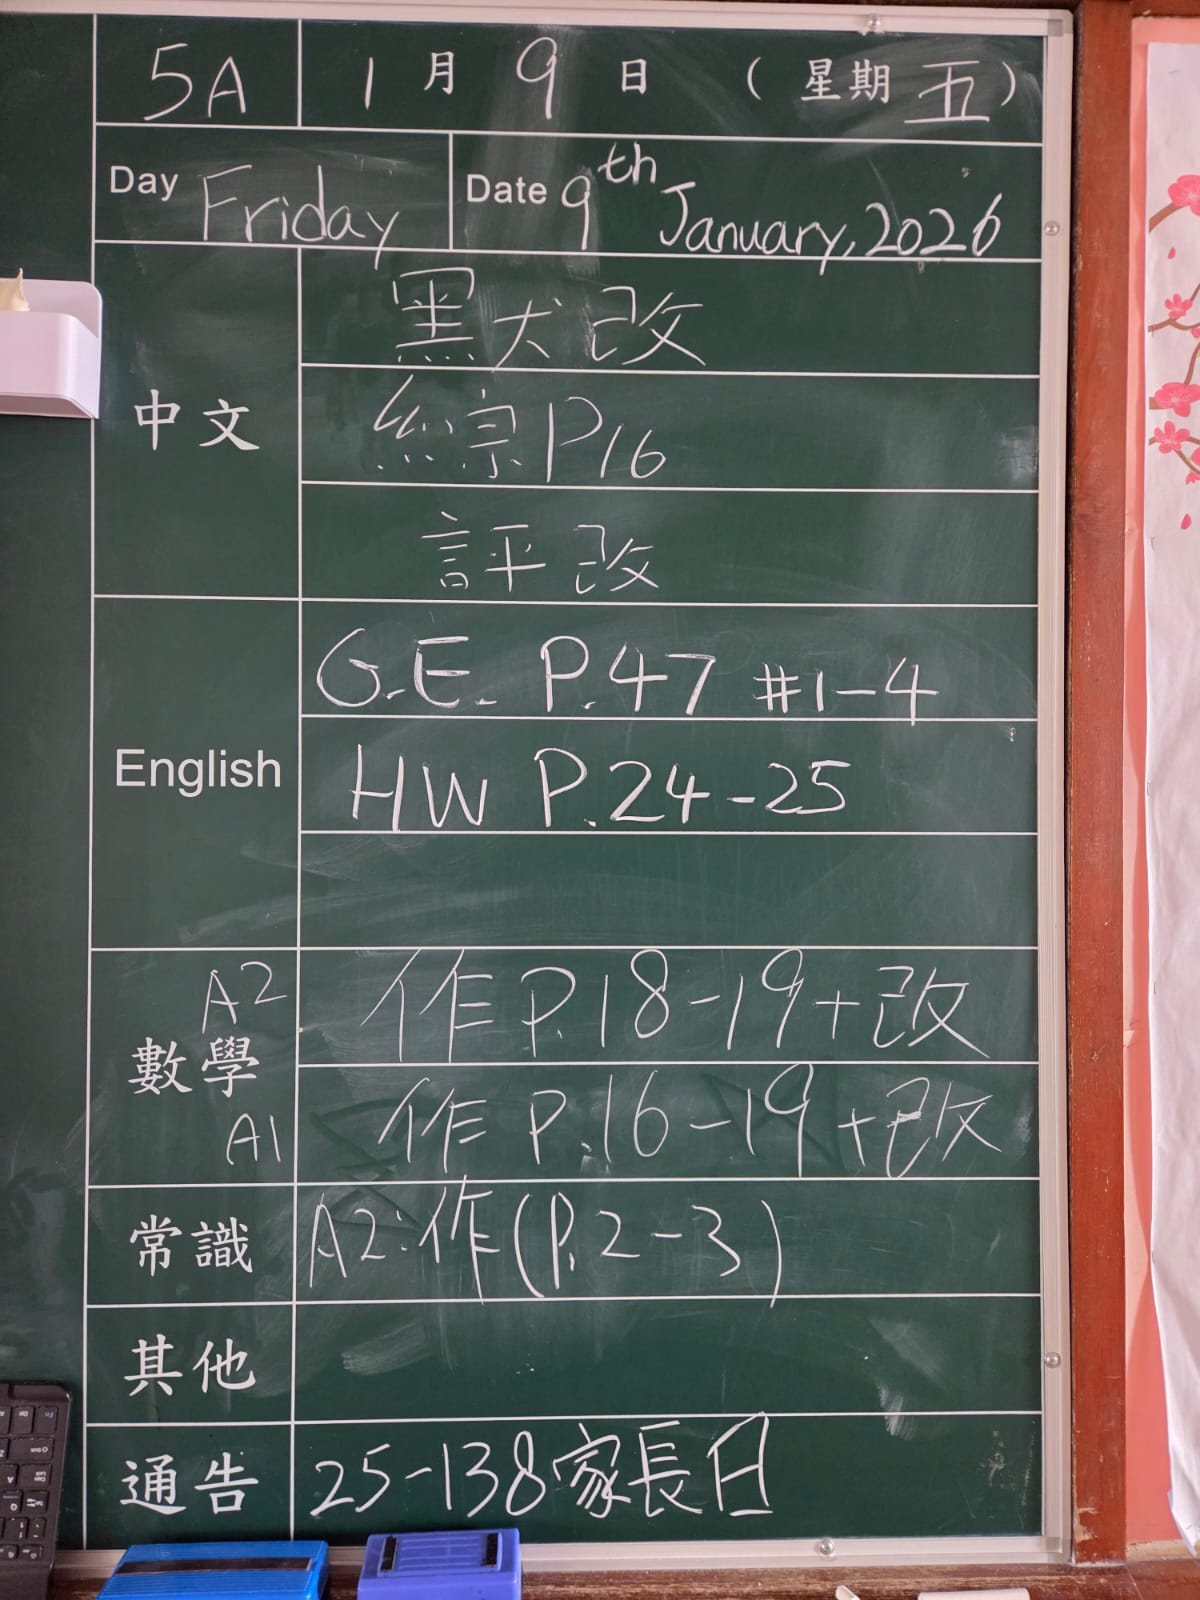 5A 1 月 9 日 ( 星期 五 )
Day Friday Date 9th January, 2026
中文
黑犬改
綜P16
評改
English
G.E. P.47 #1-4
HW P.24-25
數學
A2 作 P.18-19+改
A1 作 P.16-19+改
常識 A2:作(P.2-3)
其他
通告 25-138家長日